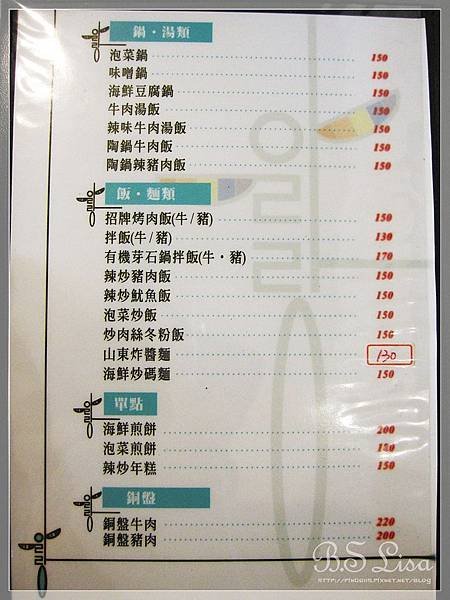 鍋‧湯類
泡菜鍋 150
味噌鍋 150
海鮮豆腐鍋 150
牛肉湯飯 150
辣味牛肉湯飯 150
陶鍋牛肉飯 150
陶鍋辣豬肉飯 150
飯‧麵類
招牌烤肉飯(牛/豬) 150
拌飯(牛/豬) 130
有機芽石鍋拌飯(牛‧豬) 170
辣炒豬肉飯 150
辣炒魷魚飯 150
泡菜炒飯 150
炒肉絲冬粉飯 150
山東炸醬麵 130
海鮮炒碼麵 150
單點
海鮮煎餅 200
泡菜煎餅
辣炒年糕 150
銅盤
銅盤牛肉 220
銅盤豬肉 200
B.S Lisa